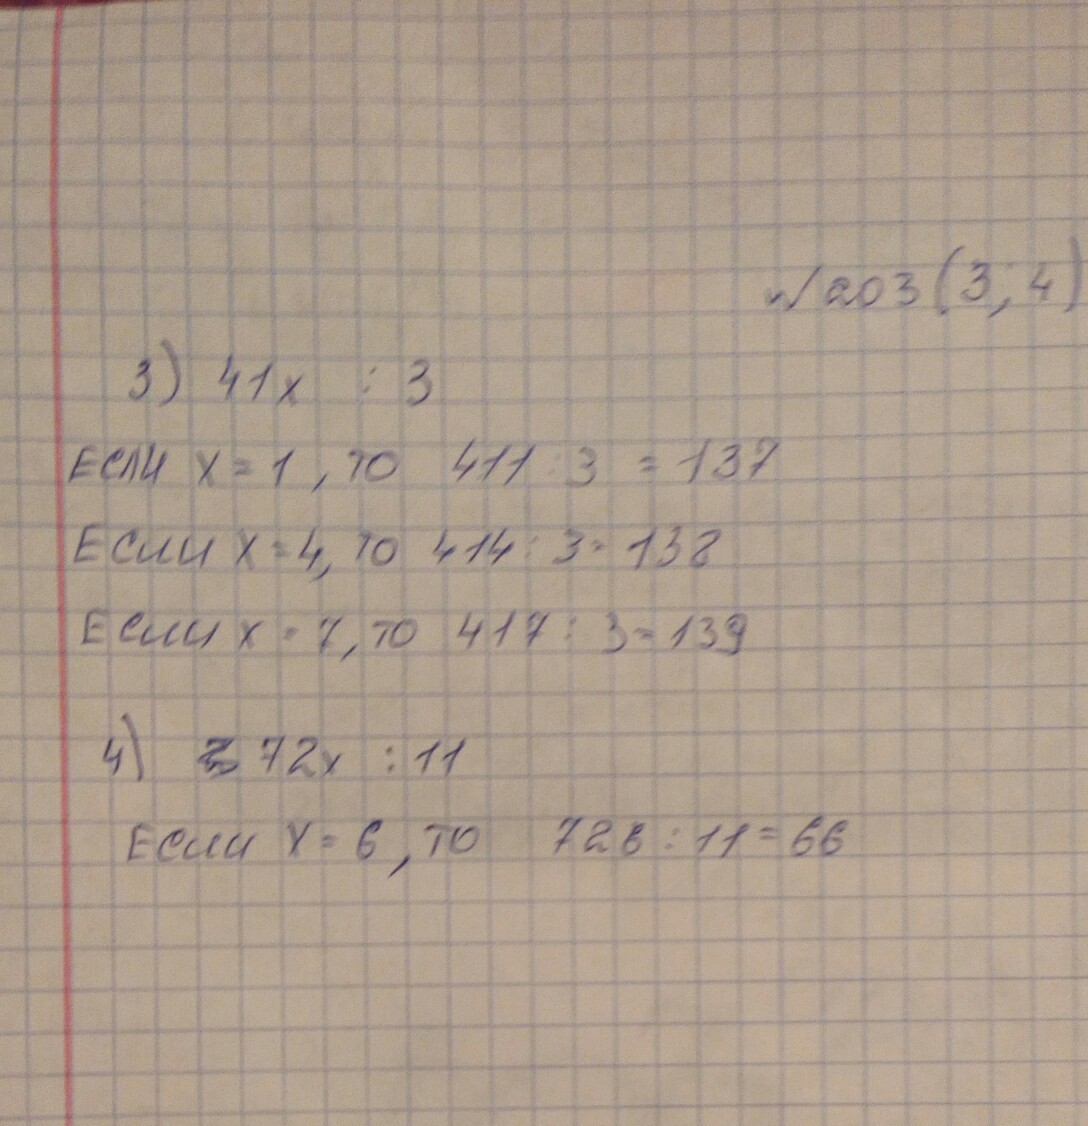 №203(3;4)
3) 41x : 3
Если x=1, то 411:3 = 137
Если x=4, то 414:3=138
Если x=7, то 417:3=139
4) 72x :11
Если x=6, то 726:11=66